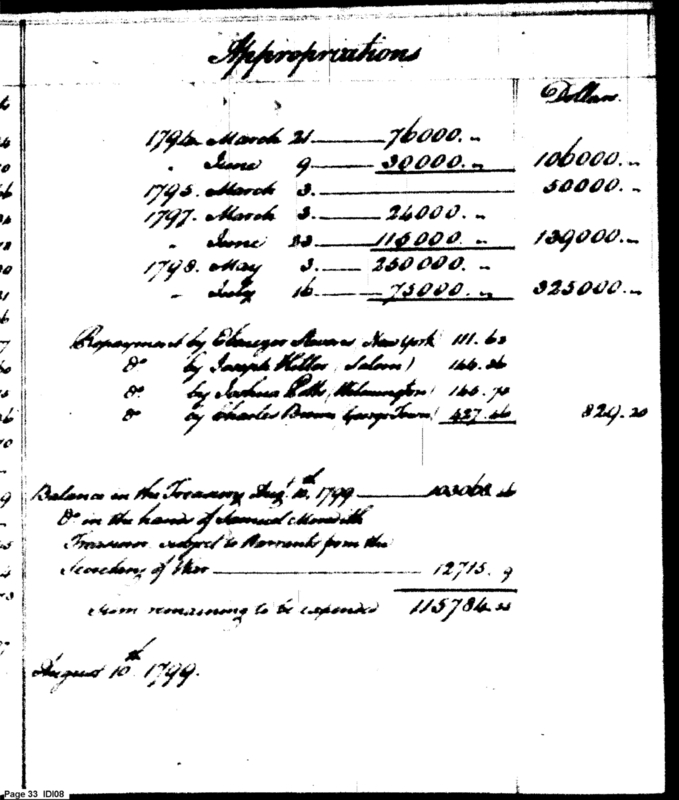 Appropriations
Dollars.
1794 March 21 76000. "
" June 9 30000. " 106000. "
1795. March 3. 50000. "
1797. March 3. 24000. "
" June 23 115000. " 139000. "
1798. May 3. 250000. "
" July 16 75000. " 325000. "
Repayment by Ebenezer Stevens New York 111.62
Do by Joseph Hiller (Salem)
Do by Joshua Potts (Wilmington)
Do by Charles Brown (George Town) 427.46 829.20
Balance in the Treasury Augt. 10th, 1799 103068.
Do in the hands of Samuel Meredith
Treasurer subject to Warrants from the
Secretary of War 12715. 9
Sum remaining to be expended 115784.
August 10th 1799.
Page 33 IDI08